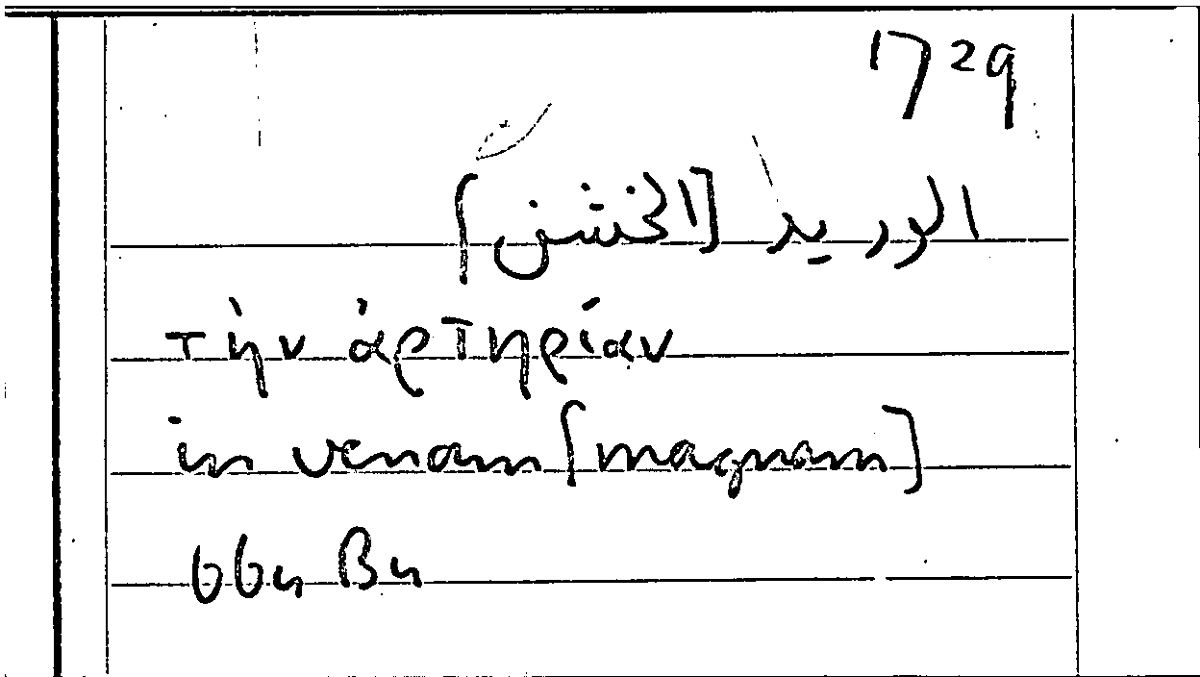 1729
الوريد [الخشن]
τὴν ἀρτηρίαν
in venam [magnam]
66u Bu